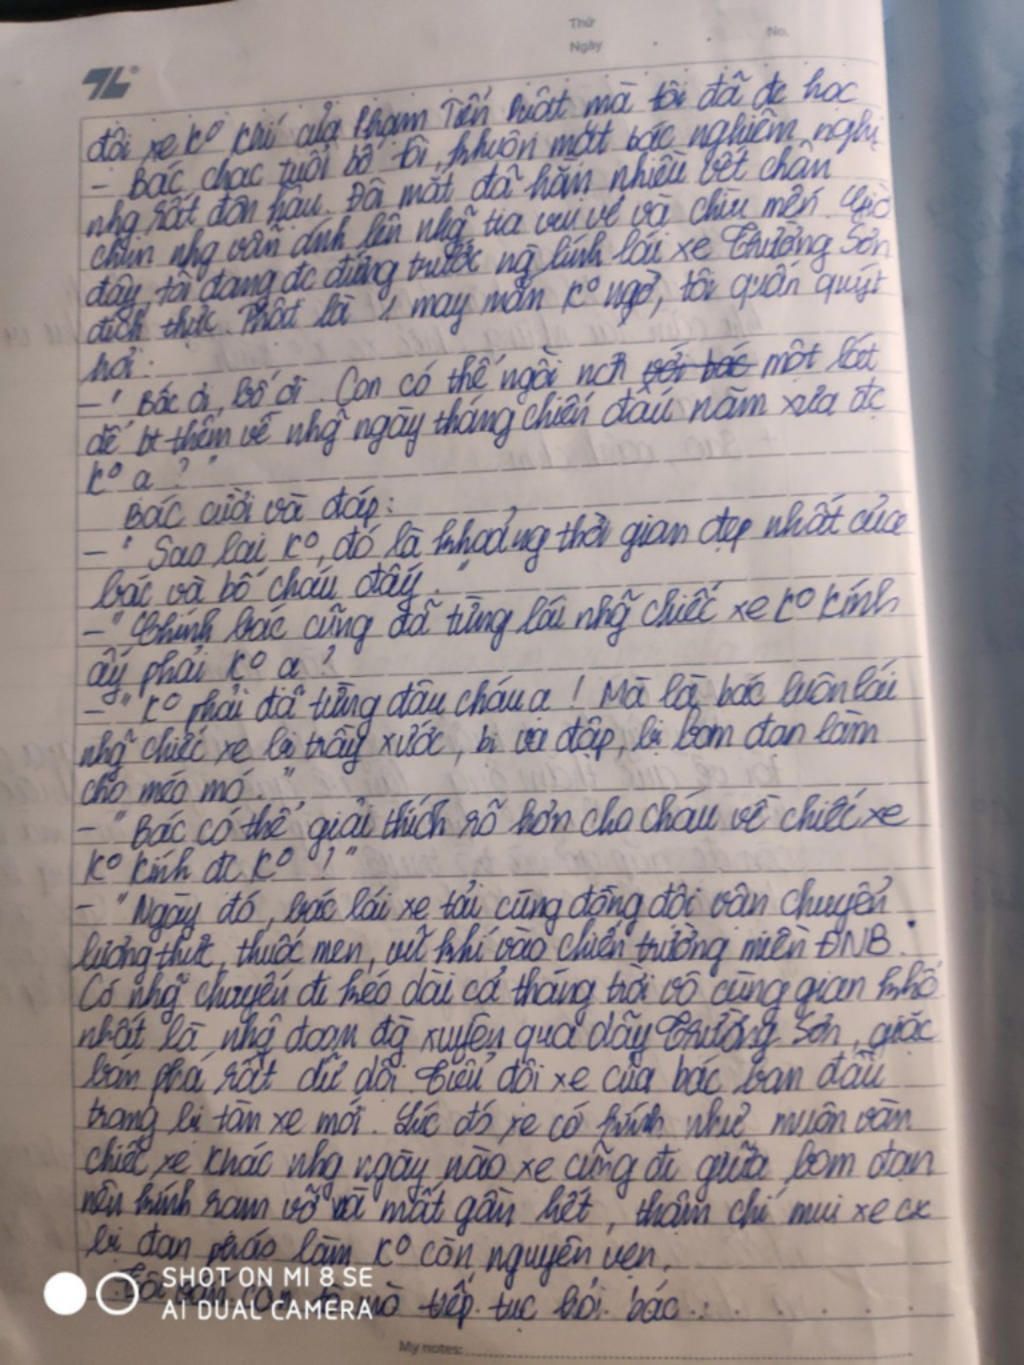 Thứ
Ngày
No.
TL
đội xe ko khí của Phạm Tiến Duật mà tôi đã đc học
- Bác chạc tuổi bố tôi, khuôn mặt bác nghiêm nghị
nhg rất đôn hậu. Đôi mắt đã hằn nhiều vết chân
chim nhg vẫn ánh lên nhg tia vui vẻ và chiu mến. Giờ
đây, tôi đang đc đứng trước ng lính lái xe Trường Sơn
đích thực. Thật là 1 may mắn ko ngờ, tôi quấn quýt
hỏi:
- " Bác ơi, bố ơi. Con có thể ngồi nch với bác một lát
để bt thêm về nhg ngày tháng chiến đấu năm xưa đc
ko ạ ? "
Bác cười và đáp:
- " Sao lại ko, đó là khoảng thời gian đẹp nhất của
bác và bố cháu đấy. "
- " Chính bác cũng đã từng lái nhg chiếc xe ko kính
ấy phải ko ạ ?
- " Ko phải đã từng đâu cháu ạ ! Mà là bác luôn lái
nhg chiếc xe bị trầy xước, bị va đập, bị bom đạn làm
cho méo mó. "
- " Bác có thể giải thích rõ hơn cho cháu về chiếc xe
ko kính đc ko ạ? "
- " Ngày đó, bác lái xe tải cùng đồng đội vân chuyển
lương thực, thuốc men, vũ khí vào chiến trường miền ĐNB.
Có nhg chuyến đi kéo dài cả tháng trời vô cùng gian khổ
nhất là nhg đoạn đg xuyên qua dãy Trường Sơn, giặc
bắn phá rất dữ dội. Tiểu đội xe của bác ban đầu
trang bị tàn xe mới. Lúc đó xe có kính như muôn vàn
chiếc xe khác nhg ngày nào xe cũng đi giữa bom đạn
nên kính rạm vỡ và mất gần hết, thậm chí mui xe cx
bị đạn pháo làm ko còn nguyên vẹn.
Tôi vẫn còn tò mò tiếp tục hỏi bác:
SHOT ON MI 8 SE
AI DUAL CAMERA
My notes: